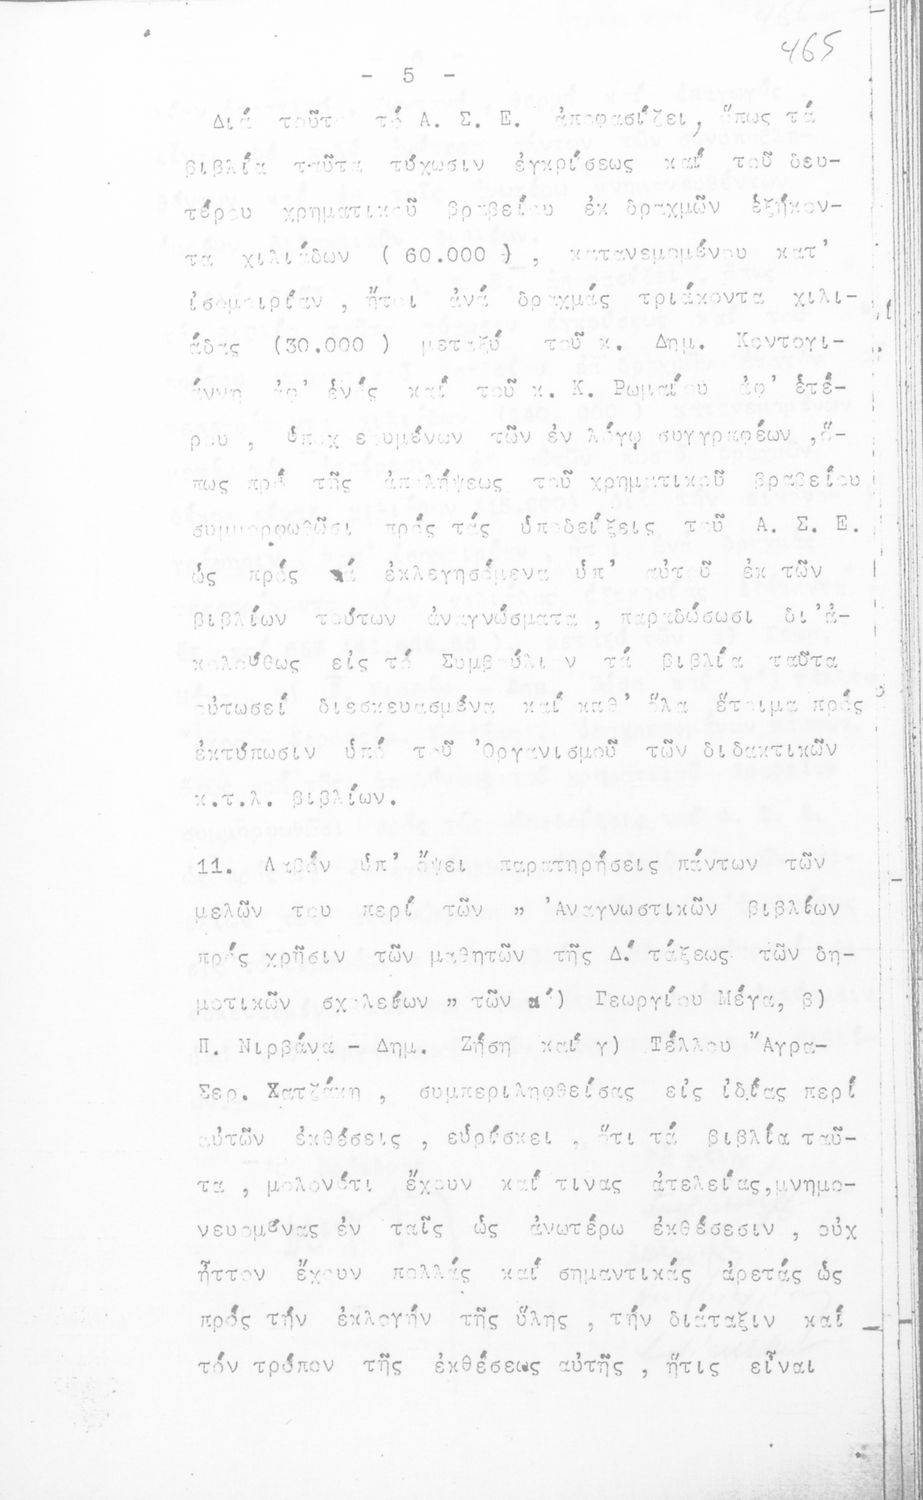 465
- 5 -
Διά τοῦτο τό Α. Σ. Ε. ἀποφασίζει, ὅπως τά
βιβλία ταῦτα τύχωσιν ἐγκρίσεως καί τοῦ δευ-
τέρου χρηματικοῦ βραβείου ἐκ δραχμῶν ἑξήκον-
τα χιλιάδων ( 60.000 ) , κατανεμομένου κατ'
ἰσομοιρίαν , ἤτοι ἀνά δραχμάς τριάκοντα χιλι-
άδας (30.000 ) μεταξύ τοῦ κ. Δημ. Κοντογι-
άννη ἀφ' ἑνός καί τοῦ κ. Κ. Ρωμαίου ἀφ' ἑτέ-
ρου , ὑποχρεουμένων τῶν ἐν λόγῳ συγγραφέων ,ὅ-
πως πρό τῆς ἀπολήψεως τοῦ χρηματικοῦ βραβείου
συμμορφωθῶσι πρός τάς ὑποδείξεις τοῦ Α. Σ. Ε.
ὡς πρός τά ἐκλεγησόμενα ὑπ' αὐτοῦ ἐκ τῶν
βιβλίων τούτων ἀναγνώσματα , παραδώσωσι δι'ἀ-
κολούθως εἰς τό Συμβούλιον τά βιβλία ταῦτα
οὑτωσεί διεσκευασμένα καί καθ' ὅλα ἕτοιμα πρός
ἐκτύπωσιν ὑπό τοῦ Ὀργανισμοῦ τῶν διδακτικῶν
κ.τ.λ. βιβλίων.
11. Λαβόν ὑπ' ὄψει παρατηρήσεις πάντων τῶν
μελῶν του περί τῶν " Ἀναγνωστικῶν βιβλίων
πρός χρῆσιν τῶν μαθητῶν τῆς Δ΄ τάξεως τῶν δη-
μοτικῶν σχολείων " τῶν α΄) Γεωργίου Μέγα, β)
Π. Νιρβάνα - Δημ. Ζήση καί γ) Τέλλου Ἄγρα-
Σερ. Χατζάκη , συμπεριληφθείσας εἰς ἰδίας περί
αὐτῶν ἐκθέσεις , εὑρίσκει , ὅτι τά βιβλία ταῦ-
τα , μολονότι ἔχουν καί τινας ἀτελείας,μνημο-
νευομένας ἐν ταῖς ὡς ἀνωτέρω ἐκθέσεσιν , οὐχ
ἧττον ἔχουν πολλάς καί σημαντικάς ἀρετάς ὡς
πρός τήν ἐκλογήν τῆς ὕλης , τήν διάταξιν καί
τόν τρόπον τῆς ἐκθέσεως αὐτῆς , ἥτις εἶναι